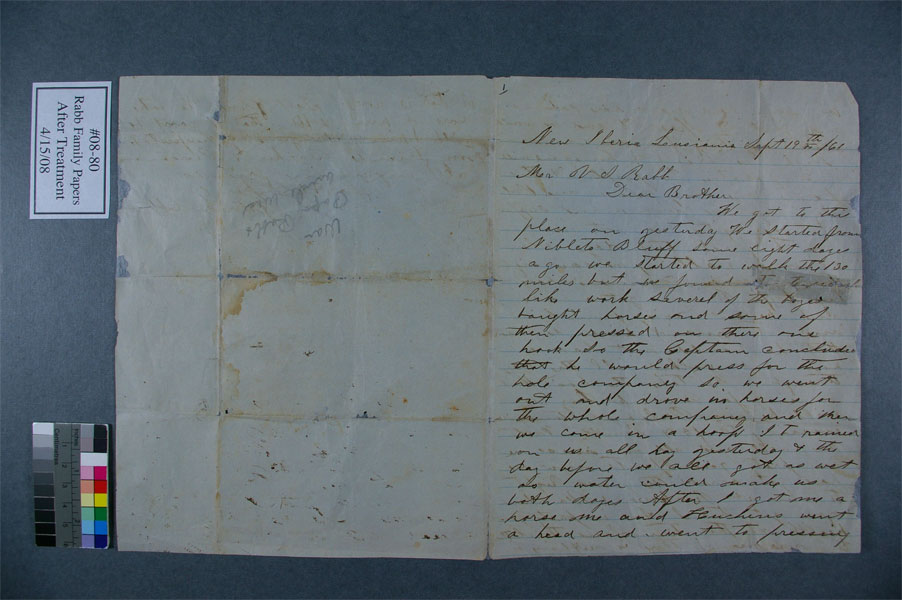 #08-80
Rabb Family Papers
After Treatment
4/15/08
1
New Iberia Louisiana Sept 19th /61
Mr V S Rabb
Dear Brother
We got to this
place on yesterday We started from
Niblets Bluff some eight days
ago we started to walk the 130
miles but we found it to much
like work several of the boys
bought horses and some of
them pressed on there one
hook So the Captain concluded
that he would press for the
hole company so we went
out and drove in horses for
the whole company and then
we come in a hoop It rained
on us all day yesterday & the
day before we all got as wet
as water could make us
both days After I got me a
horse me and Huchins went
a head and went to pressing